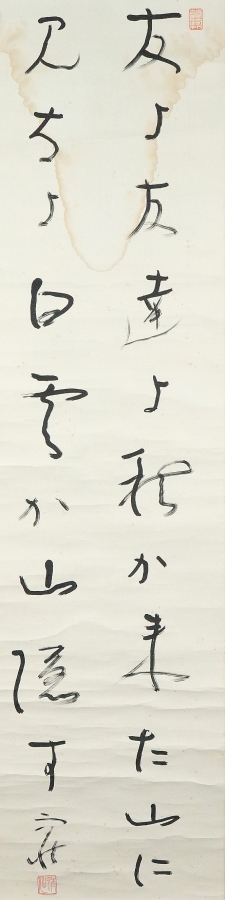 友よ友達よ秋か来た山に
見なよ白雲か山隠す